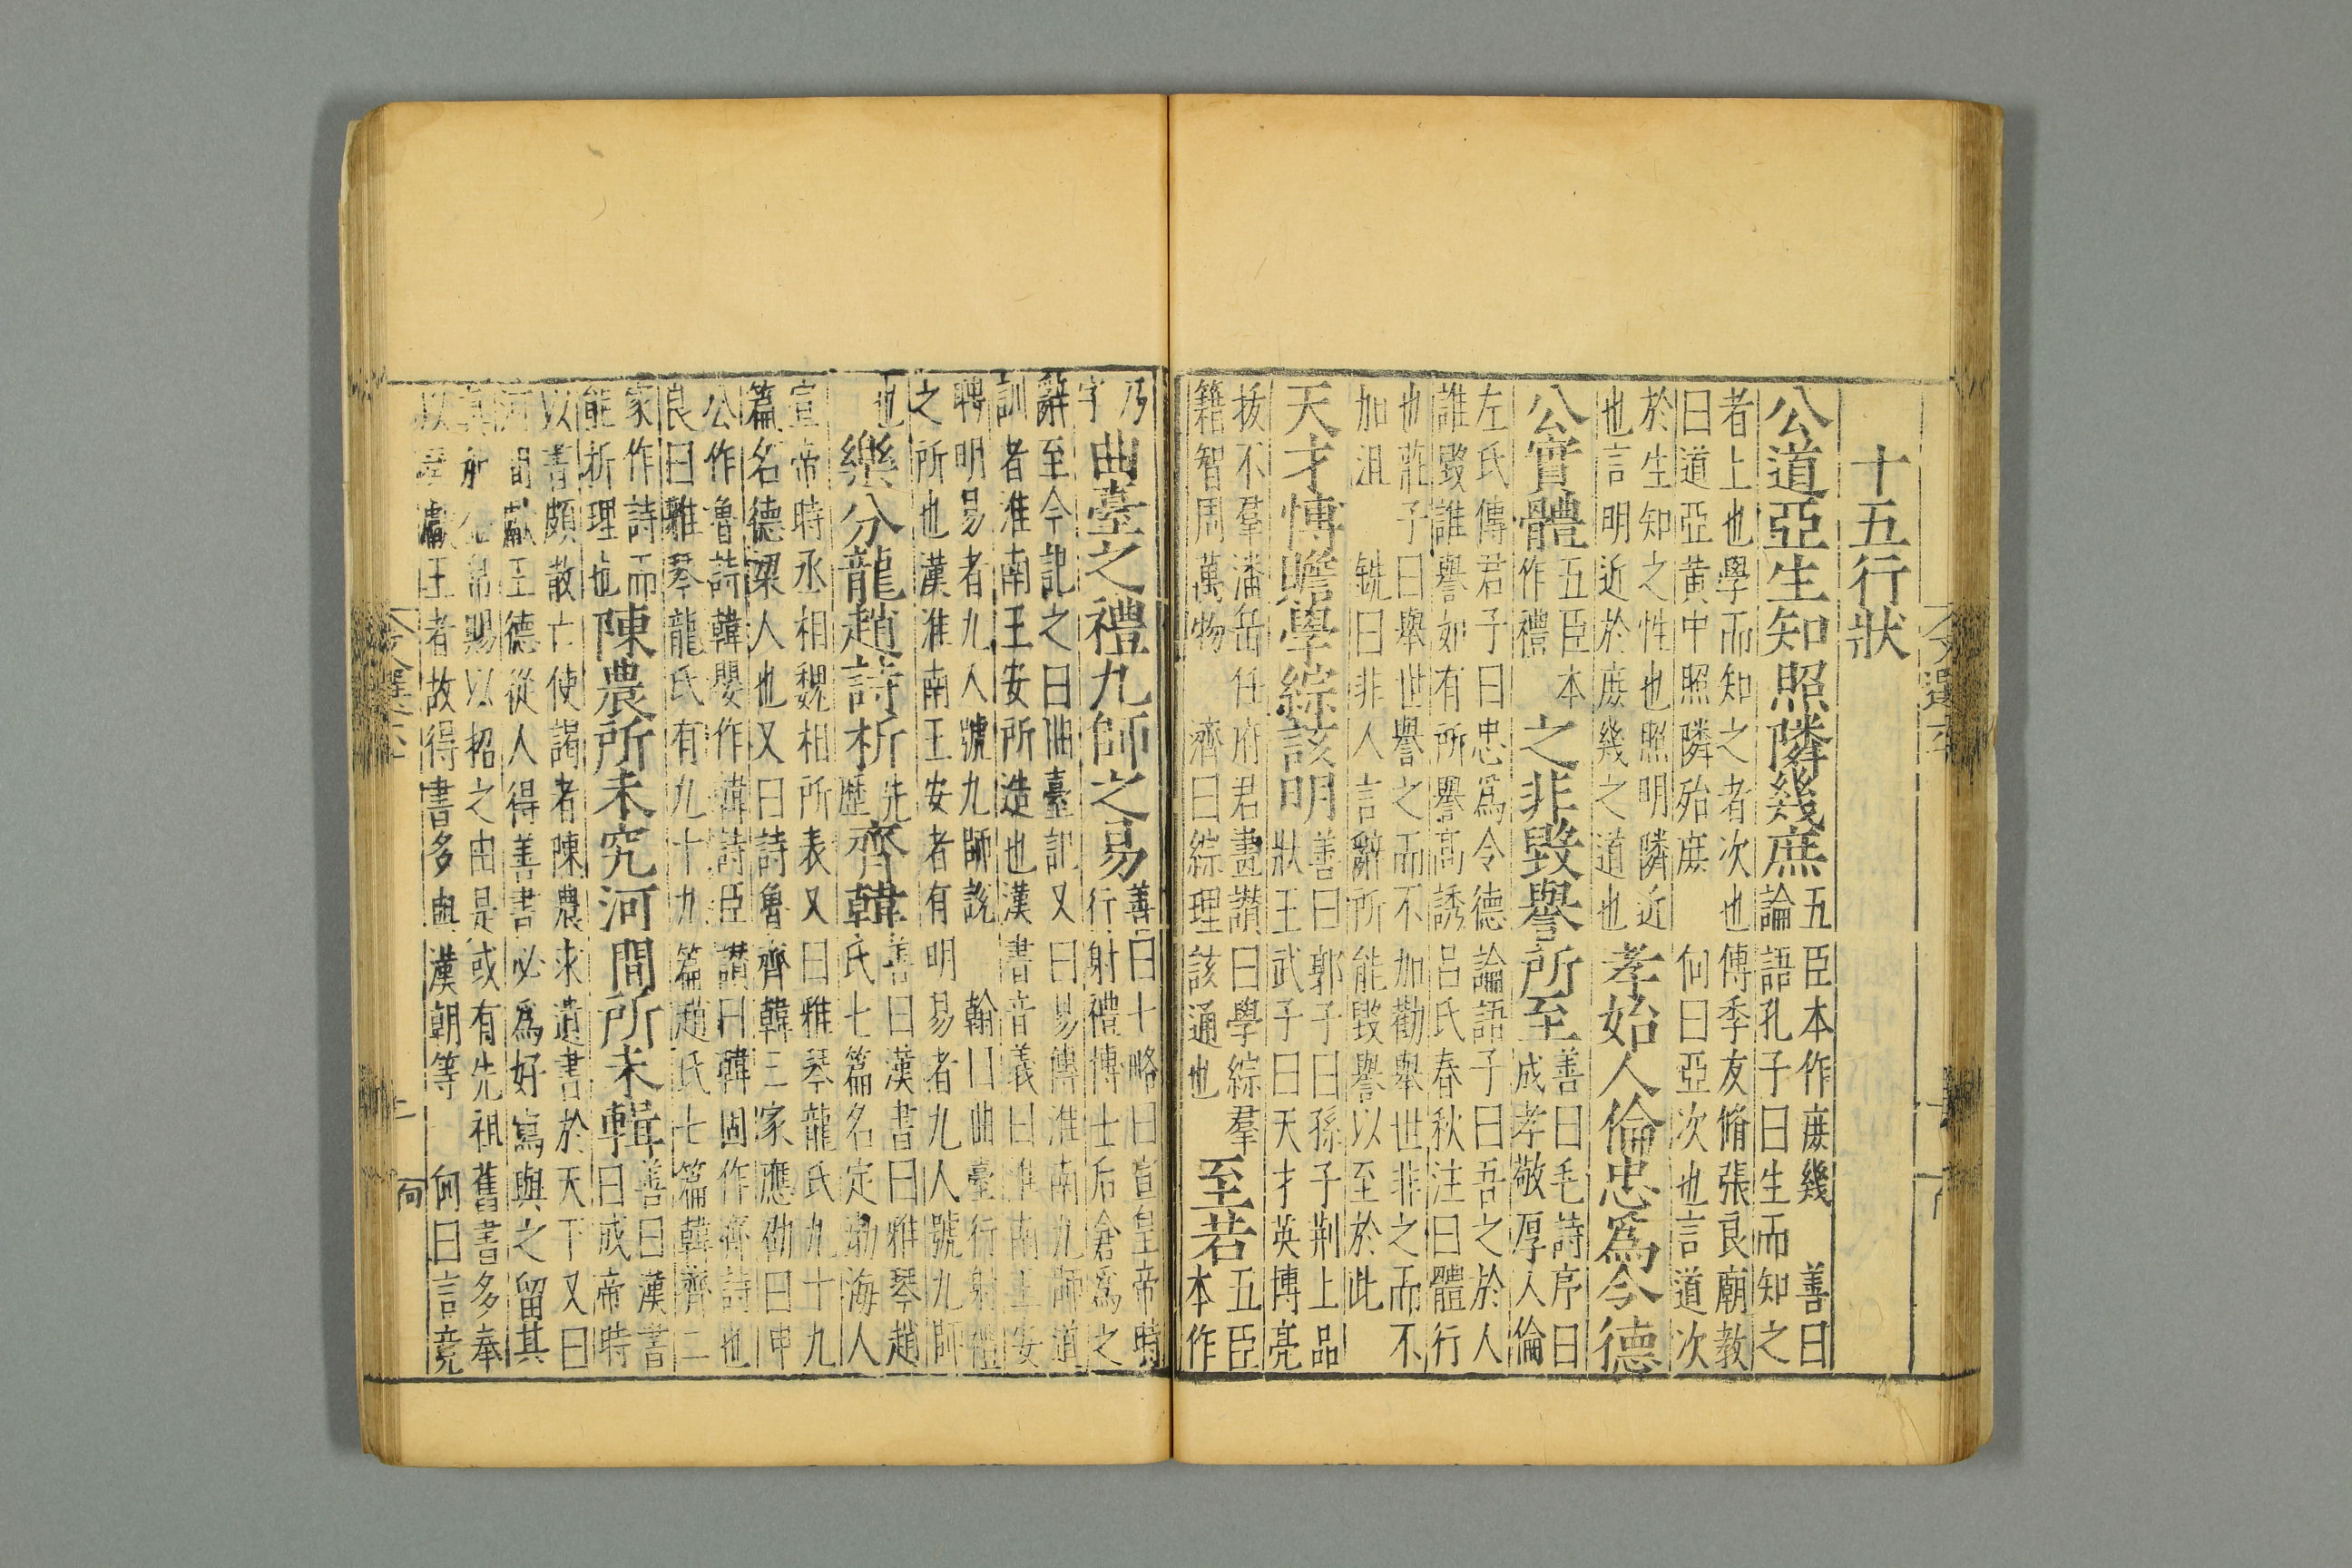 十五行狀
公道亞生知照隣幾庶五臣本作庶幾 善曰
論語孔子曰生而知之
者上也學而知之者次也傅季友脩張良廟教
曰道亞黃中照隣殆庶 向曰亞次也言道次
於生知之性也照明隣近
也言明近於庶幾之道也孝始人倫忠爲令德
公實體五臣本
作禮之非毀譽所至善曰毛詩序曰
成孝敬厚人倫
左氏傳君子曰忠爲令德論語子曰吾之於人
誰毀誰譽如有所譽高誘呂氏春秋注曰體行
也莊子曰舉世譽之而不加勸舉世非之而不
加沮 銑曰非人言辭所能毀譽以至於此
天才博贍學綜該明善曰郭子曰孫子荆上品
狀王武子曰天才英博亮
拔不羣潘岳任府君畫讚曰學綜羣
籍智周萬物 濟曰綜理該通也至若五臣
本作
乃
字曲臺之禮九師之易善曰七略曰宣皇帝時
行射禮博士后倉爲之
辭至今記之曰曲臺記又曰易傳淮南九師道
訓者淮南王安所造也漢書音義曰淮南王安
聘明易者九人號九師說 翰曰曲臺行射禮
之所也漢淮南王安者有明易者九人號九師
也樂分龍趙詩析先
歷齊韓善曰漢書曰雅琴趙
氏七篇名定渤海人
宣帝時丞相魏相所表又曰雅琴龍氏九十九
篇名德梁人也又曰詩魯齊韓三家應劭曰申
公作魯詩韓嬰作韓詩臣讃曰韓固作齊詩也
良曰雅琴龍氏有九十九篇趙氏七篇韓齊二
家作詩而
能析理也陳農所未究河間所未輯善曰漢書
曰成帝時
以書頗散亡使謁者陳農求遺書於天下又曰
河間獻王德從人得善書必爲好寫與之留其
真加金帛賜以招之由是或有先祖舊書多奉
以奏獻王者故得書多與漢朝等 向曰言竟